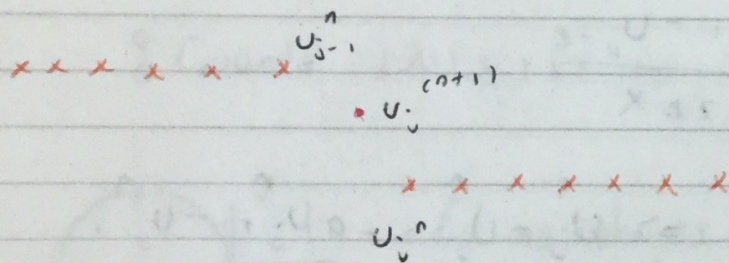 U_{j-1}^n
U_j^{(n+1)}
U_j^n